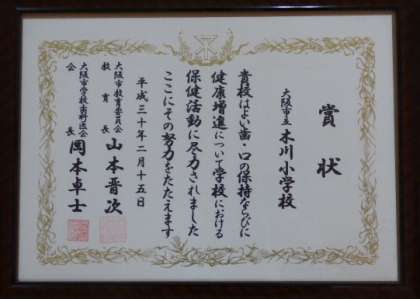 賞状
大阪市立 木川小学校
貴校はよい歯・口の保持ならびに
健康増進について学校における
保健活動に尽力されました
ここにその努力をたたえます
平成三十年二月十五日
大阪市教育委員会
教育長 山本晋次
大阪市学校歯科医会
会長 岡本卓士